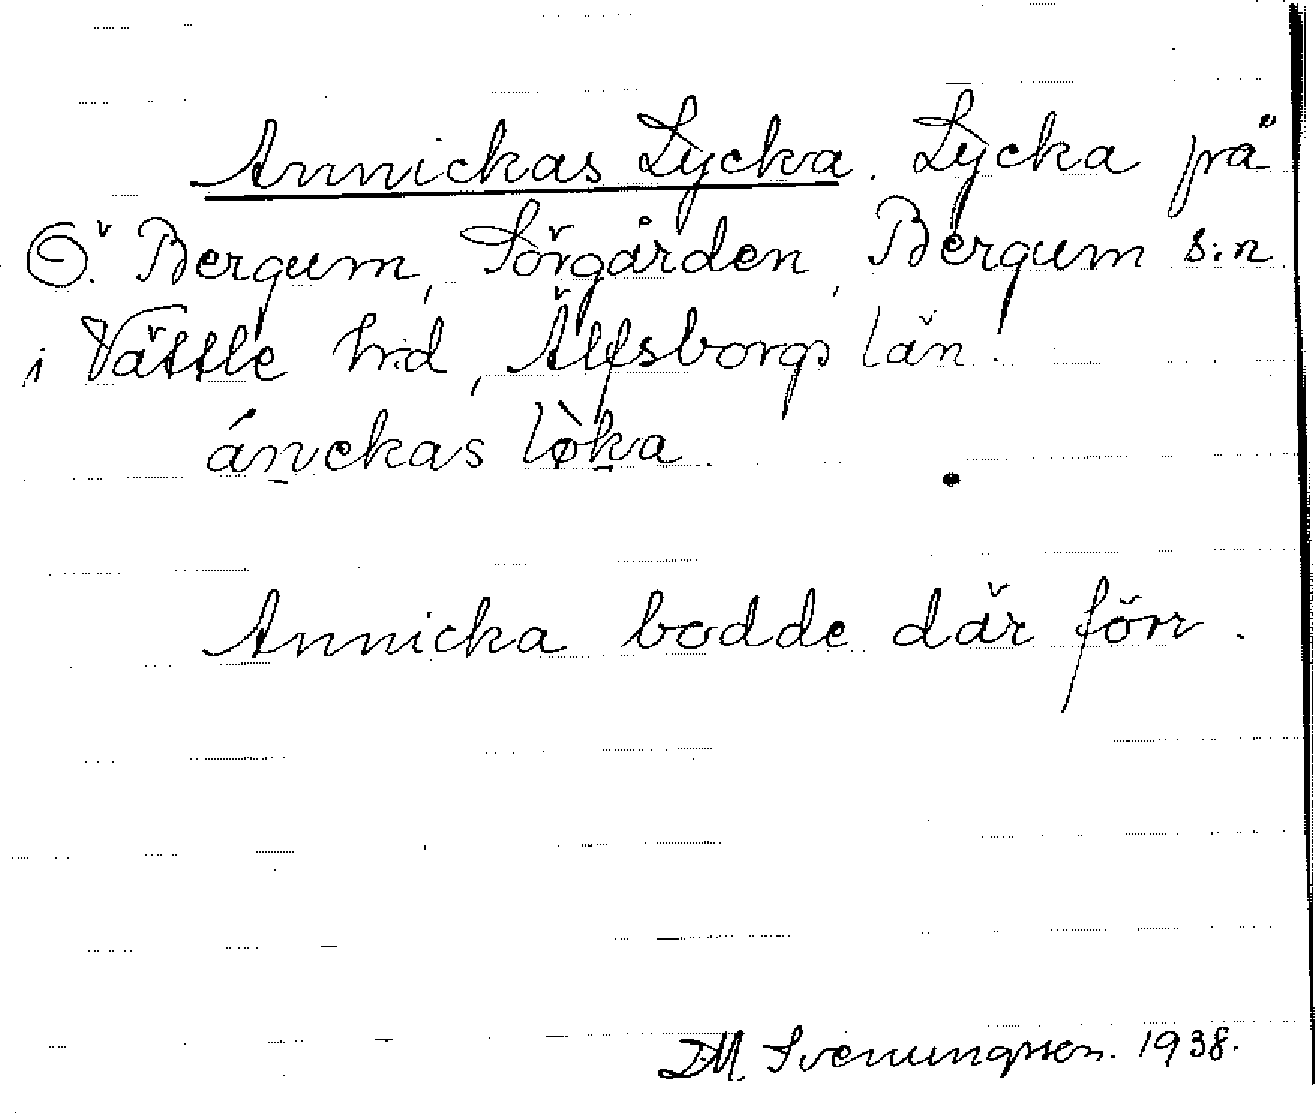 Annickas Lycka. Lycka på
Ö. Bergum, Sörgården, Bergum s:n
i Vättle hrd, Älfsborgs län.
án̲ckas lø̀k̲a.
Annicka bodde där förr.
DM. Svenungsson. 1938.